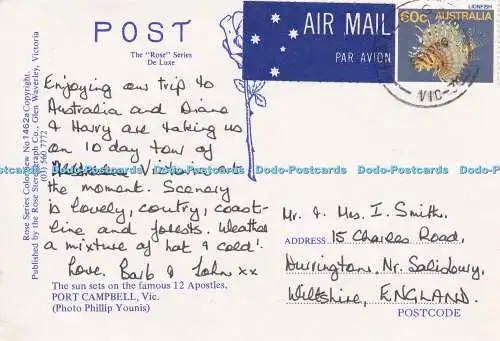 POST
The "Rose" Series
De Luxe
AIR MAIL
PAR AVION
LIONFISH
60c AUSTRALIA
VIC-
Rose Series Colour View No 1462a Copyright.
Published by the Rose Stereograph Co., Glen Waverley, Victoria
(03) 560 7772
Enjoying our trip to
Australia and Diane
& Harry are taking us
on 10 day tour of
Victoria at
the moment. Scenery
is lovely, country, coast-
line and forests. Weather
a mixture of hot & cold!
Love. Barb & John xx
The sun sets on the famous 12 Apostles.
PORT CAMPBELL, Vic.
(Photo Phillip Younis)
Mr. & Mrs. I. Smith.
ADDRESS 15 Charles Road,
Durrington, Nr. Salisbury,
Wiltshire, ENGLAND.
POSTCODE
Dodo-Postcards Dodo-Postcards Dodo-Postcards Dodo-Postcards Dodo-Postcards Dodo-Postcards